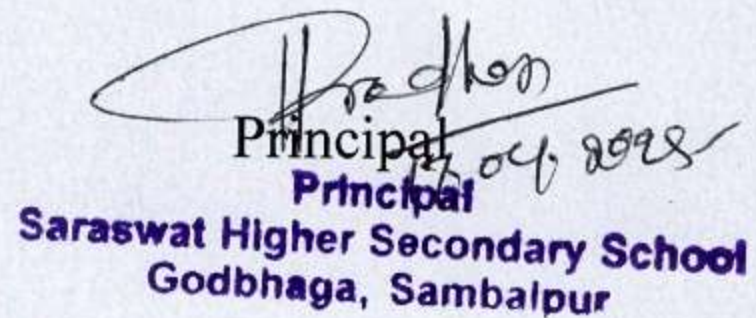 Pradhan
Principal
17.04.2025
Principal
Saraswat Higher Secondary School
Godbhaga, Sambalpur